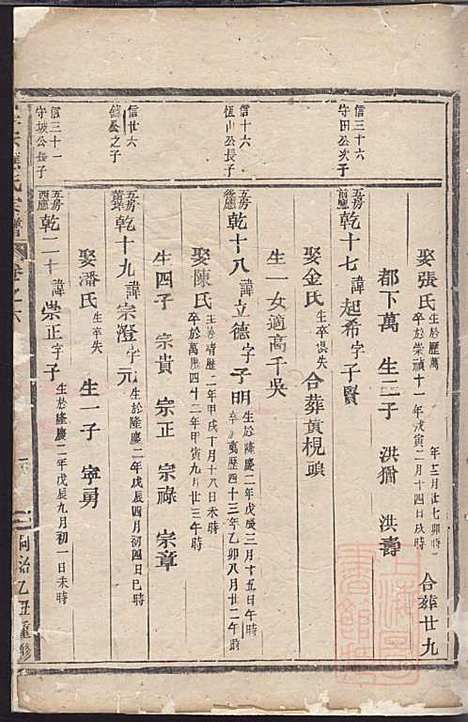 娶張氏 生於歷萬 年三月廿七卯時 卒於崇禎十一年戊寅二月十四日戌時 合葬廿九
都下萬 生二子 洪猶 洪壽
信三十六
守田公次子
五房
前應
乾十七 諱起希字子賢
娶金氏 生卒俱失 合葬黃梘頭
生一女適高千吳
信十六
恆山公長子
五房
後應
乾十八 諱立德字子明 生於隆慶二年戊辰三月十五日午時 卒於萬歷四十三年乙卯八月廿二午時
娶陳氏 生於靖歷二年甲戌十月十八日未時 卒於萬歷四十二年甲寅九月廿三午時
生四子 宗貴 宗正 宗祿 宗章
信廿六
公之子
五房
乾十九 諱宗澄字元 生於隆慶二年戊辰四月初四日巳時
娶潘氏 生卒失 生一子 寧勇
信三十一
守城公長子
五房
西應
乾二十 諱崇正字子 生於隆慶二年戊辰九月初一日未時
氏宗譜 卷之六 同治乙丑重修